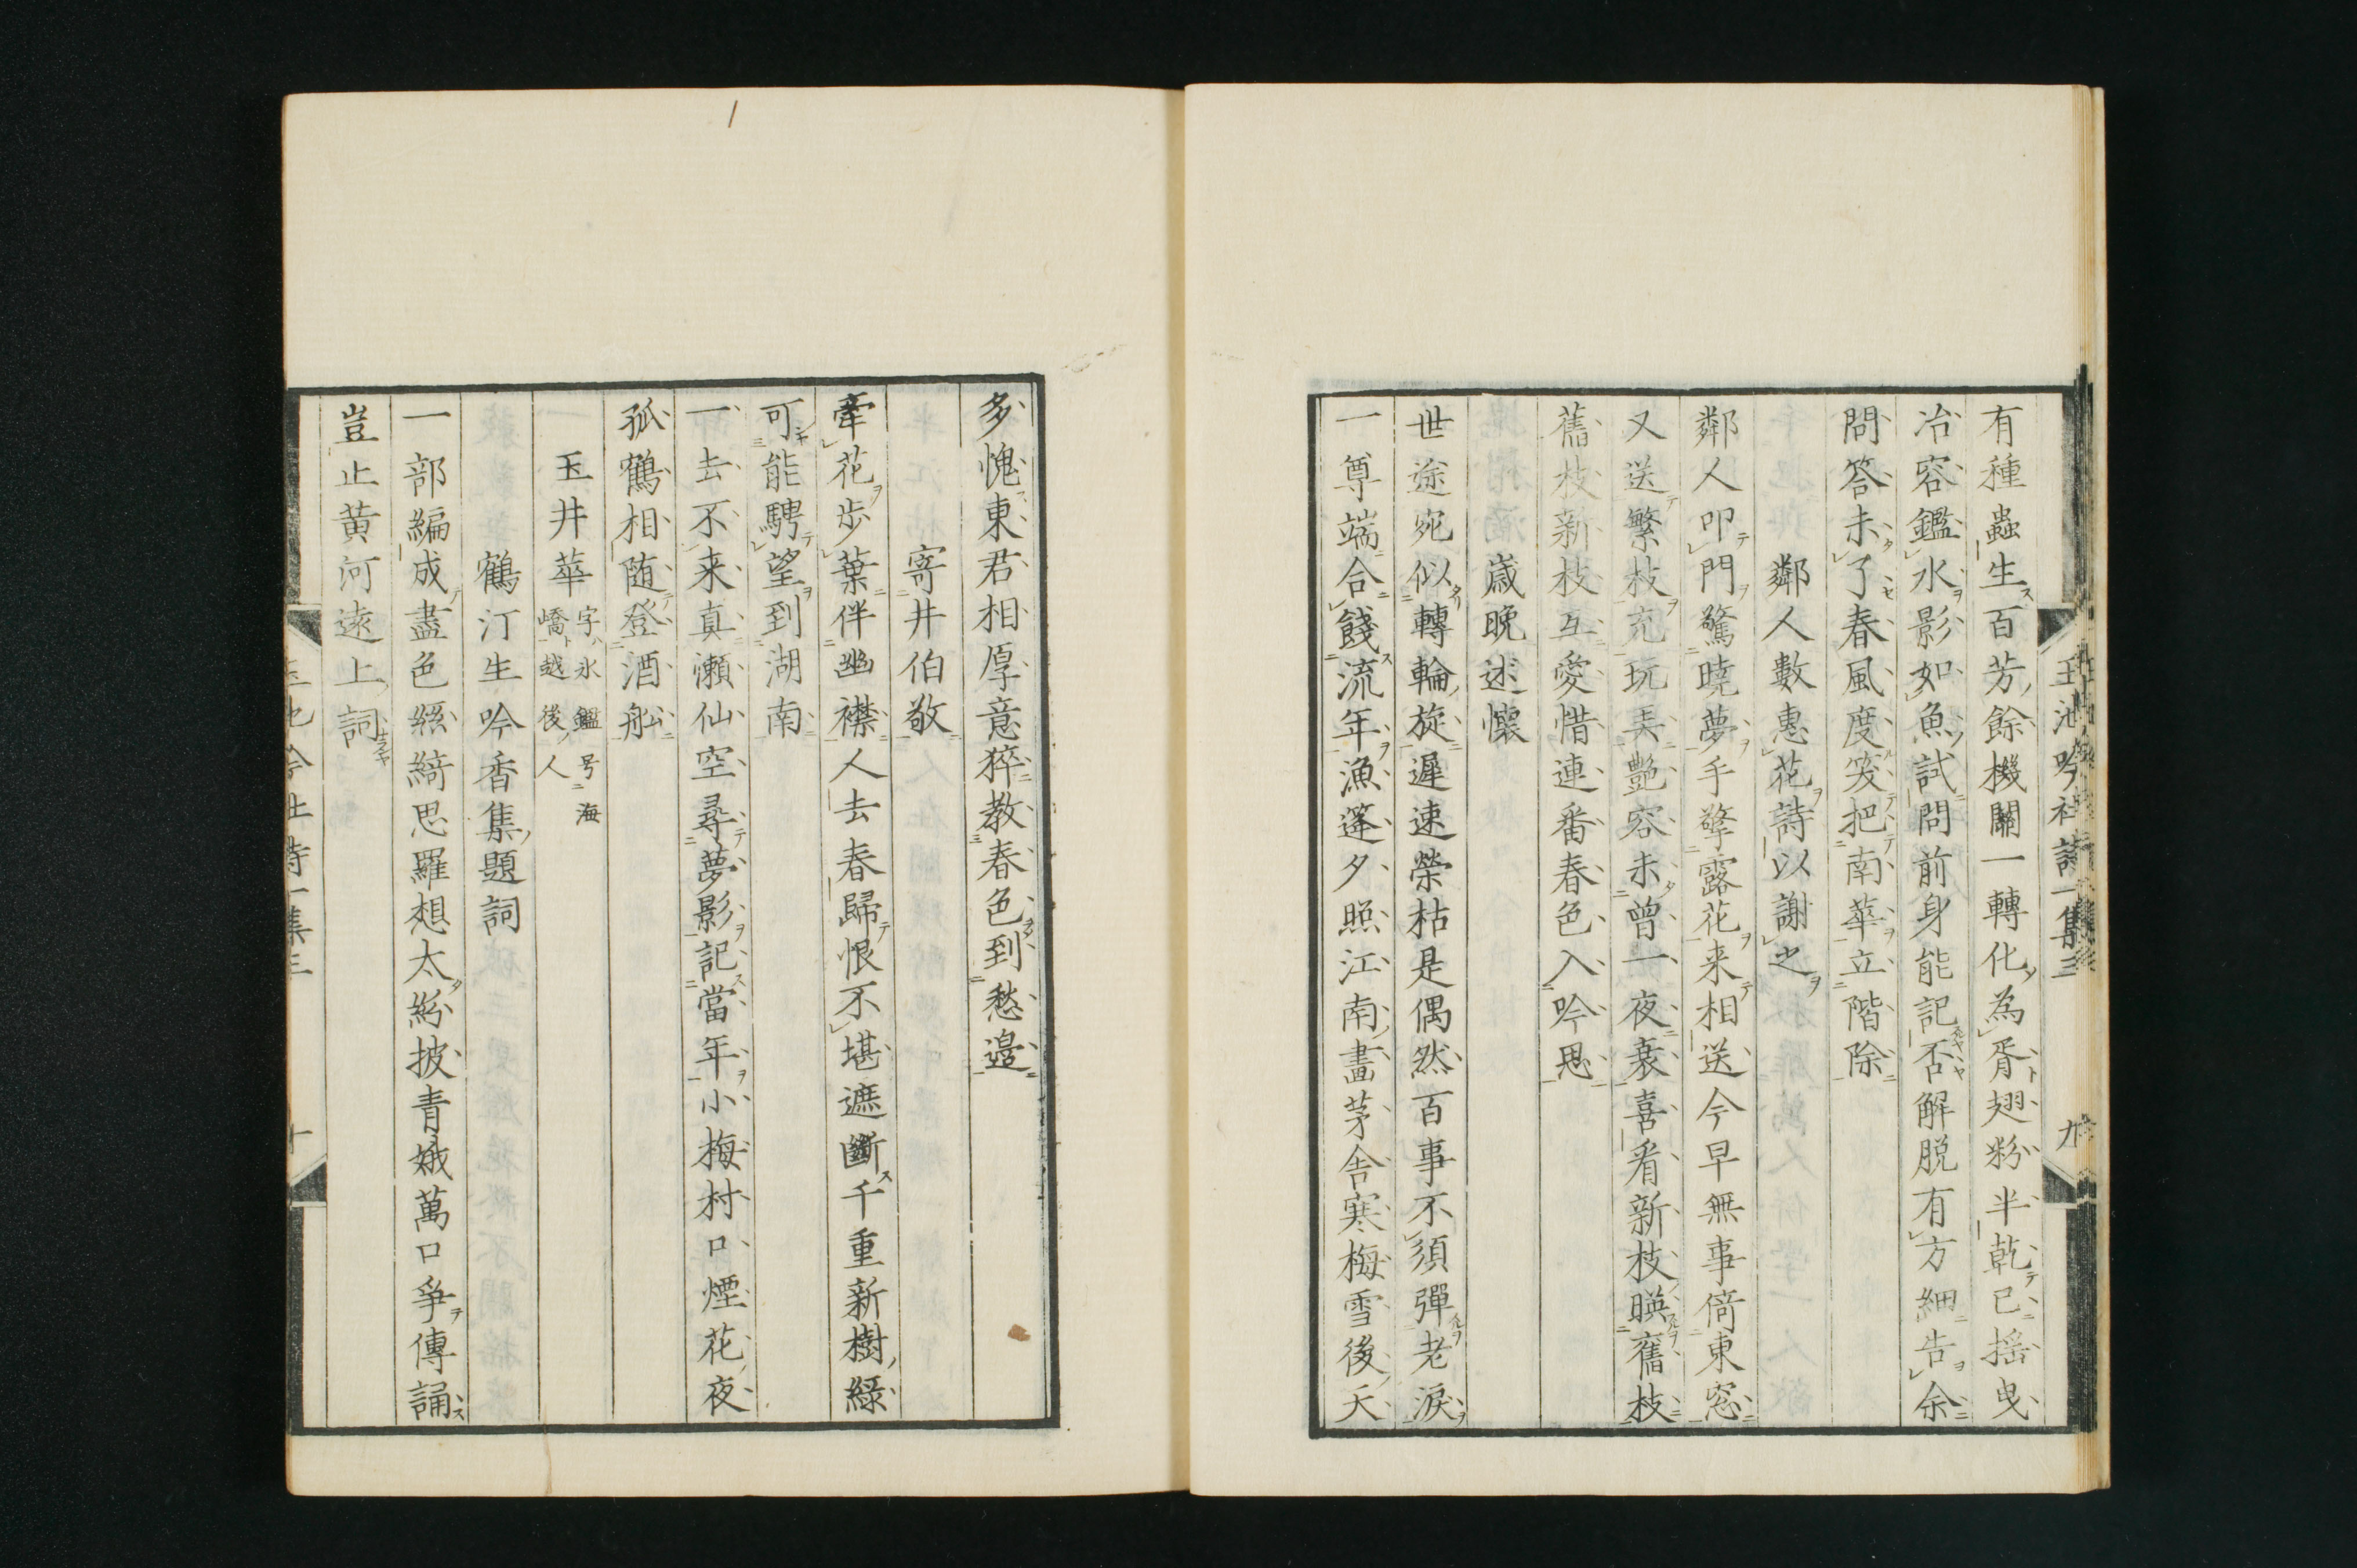 玉池吟社詩一集三 九
有種蟲生百芳餘機關一轉化為胥翅粉半乾已揺曳
冶容鑑水影如魚試問前身能記否解脱有方細告余
問答未了春風度笑把南華立階除
鄰人數惠花詩以謝之
鄰人叩門驚曉夢手擎露花来相送今早無事倚東窓
又送繁枝充玩弄艶容未曾一夜衰喜看新枝暎舊枝
舊枝新枝互愛惜連番春色入吟思
歳晩述懷
世途宛似轉輪旋遲速榮枯是偶然百事不須彈老淚
一尊端合餞流年漁篷夕照江南畫茅舎寒梅雪後天
多愧東君相厚意猝教春色到愁邉
寄井伯敬
牽花歩葉伴幽襟人去春歸恨不堪遮斷千重新樹緑
可能騁望到湖南
一去不来真瀬仙空尋夢影記當年小梅村口煙花夜
孤鶴相随登酒舩
玉井華 字氷鑑号海嶠越後人
鶴汀生吟香集題詞
一部編成盡色絲綺思羅想太紛披青娥萬口爭傳誦
豈止黄河遠上詞